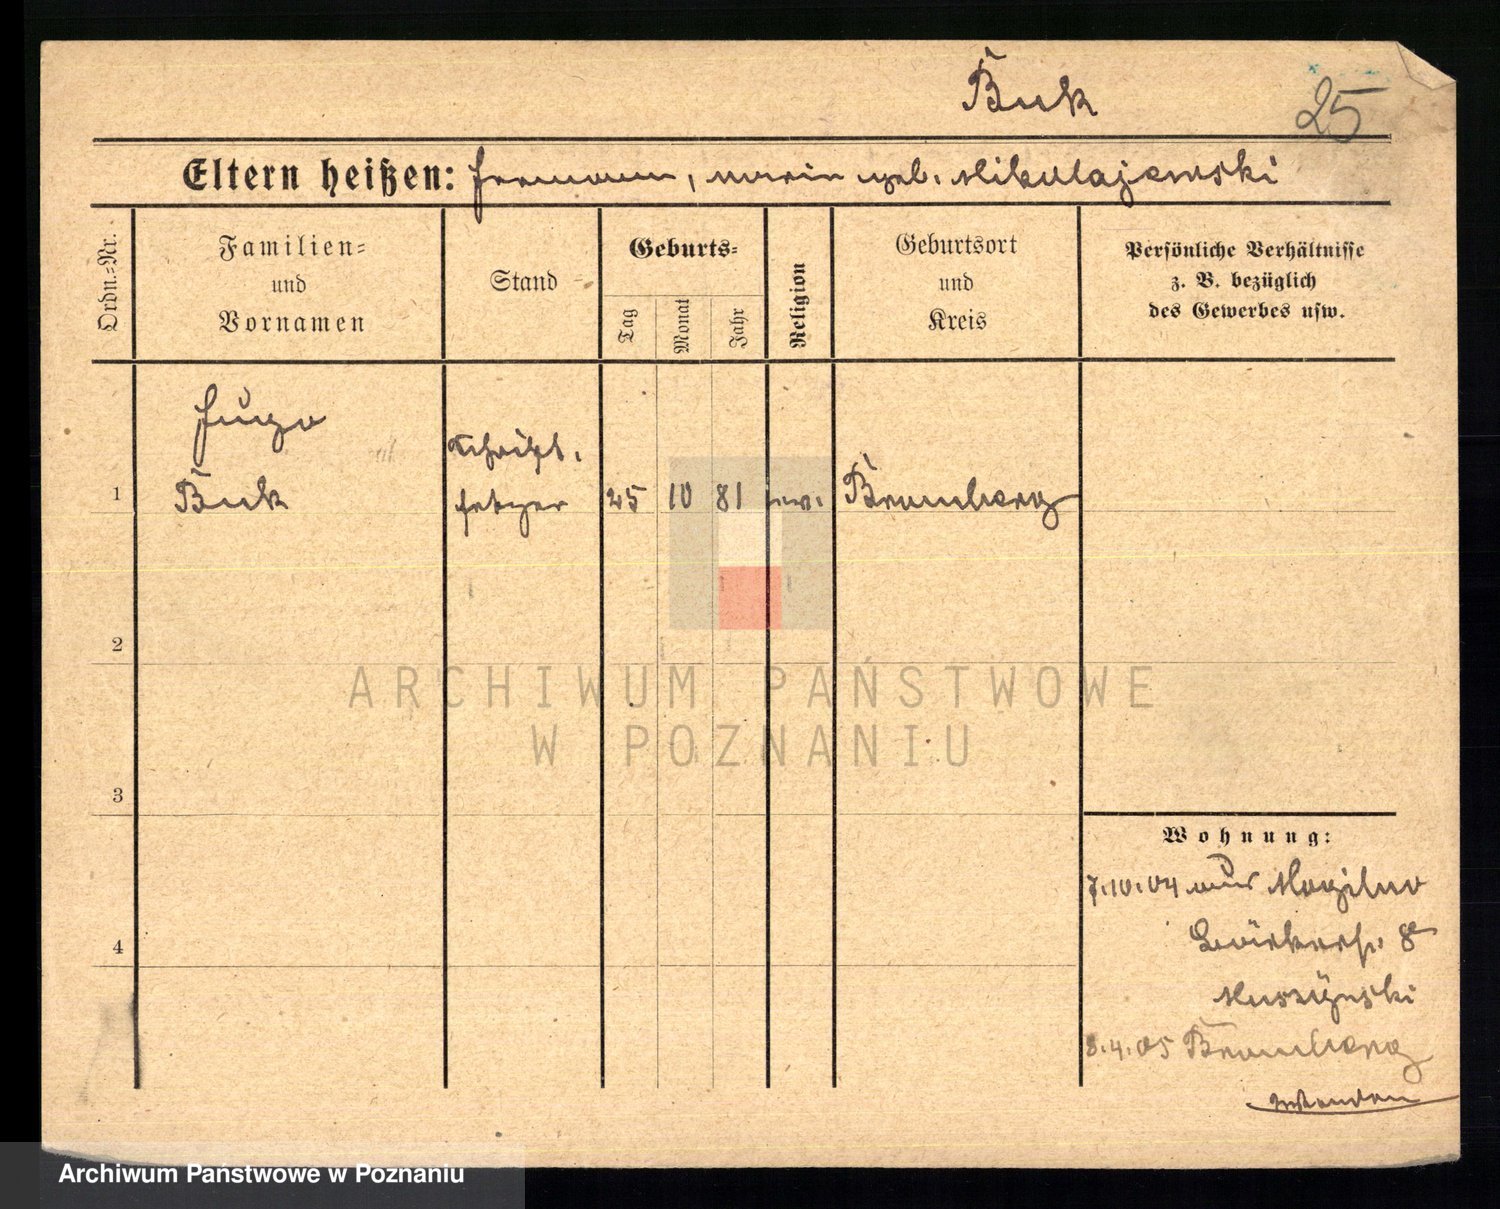 Buk
25
Eltern heißen: Hermann, Marie geb. Mikulajewski
Ordn.-Nr.
Familien-
und
Vornamen
Stand
Geburts-
Tag
Monat
Jahr
Religion
Geburtsort
und
Kreis
Persönliche Verhältnisse
z. B. bezüglich
des Gewerbes usw.
Hugo
Schrift-
1 Buk setzer 25 10 81 ev. Bromberg
2
ARCHIWUM PAŃSTWOWE
W POZNANIU
3
Wohnung:
7.10.04 aus Mogilno
8
Muszÿnski
4
8.4.05 Bromberg
wenden
Archiwum Państwowe w Poznaniu